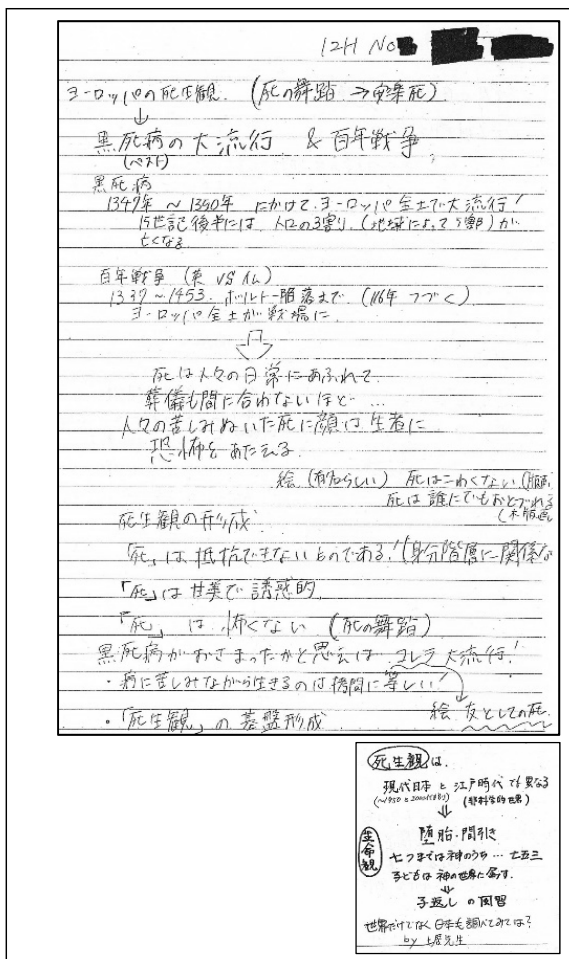 12H No
ヨーロッパの死生観 (死の舞踏 → 安楽死)
↓
黒死病の大流行 & 百年戦争
(ペスト)
黒死病
1347年 ~ 1350年 にかけて、ヨーロッパ全土で大流行!
15世紀後半には 人口の3割り (地球によって 5割) が
亡くなる
百年戦争 (英 VS 仏)
1337~1453. ボルドー陥落まで (116年 つづく)
ヨーロッパ全土が戦場に
死は人々の日常にあふれて
葬儀も間に合わないほど…
人々の苦しみぬいた死に顔は生者に
恐怖をあたえる
絵 死はこわくない
死は誰にでもおとづれる
(木版画)
死生観の形成
「死」は抵抗できないものである! (身分階層に関係な
「死」は甘美で誘惑的
「死」は 怖くない (死の舞踏)
黒死病がおさまったかと思えば コレラ 大流行!
・病に苦しみながら生きるのは拷問に等しい!
・「死生観」の基盤形成 絵 友としての死
死生観は、
現代日本 と 江戸時代 でも異なる
(非科学的世界)
↓
生命観
堕胎・間引き
七つまでは神のうち… 七五三
子どもは神の世界に属す.
↓
子返し の風習
世界だけでなく日本も調べてみては?
by 土居先生